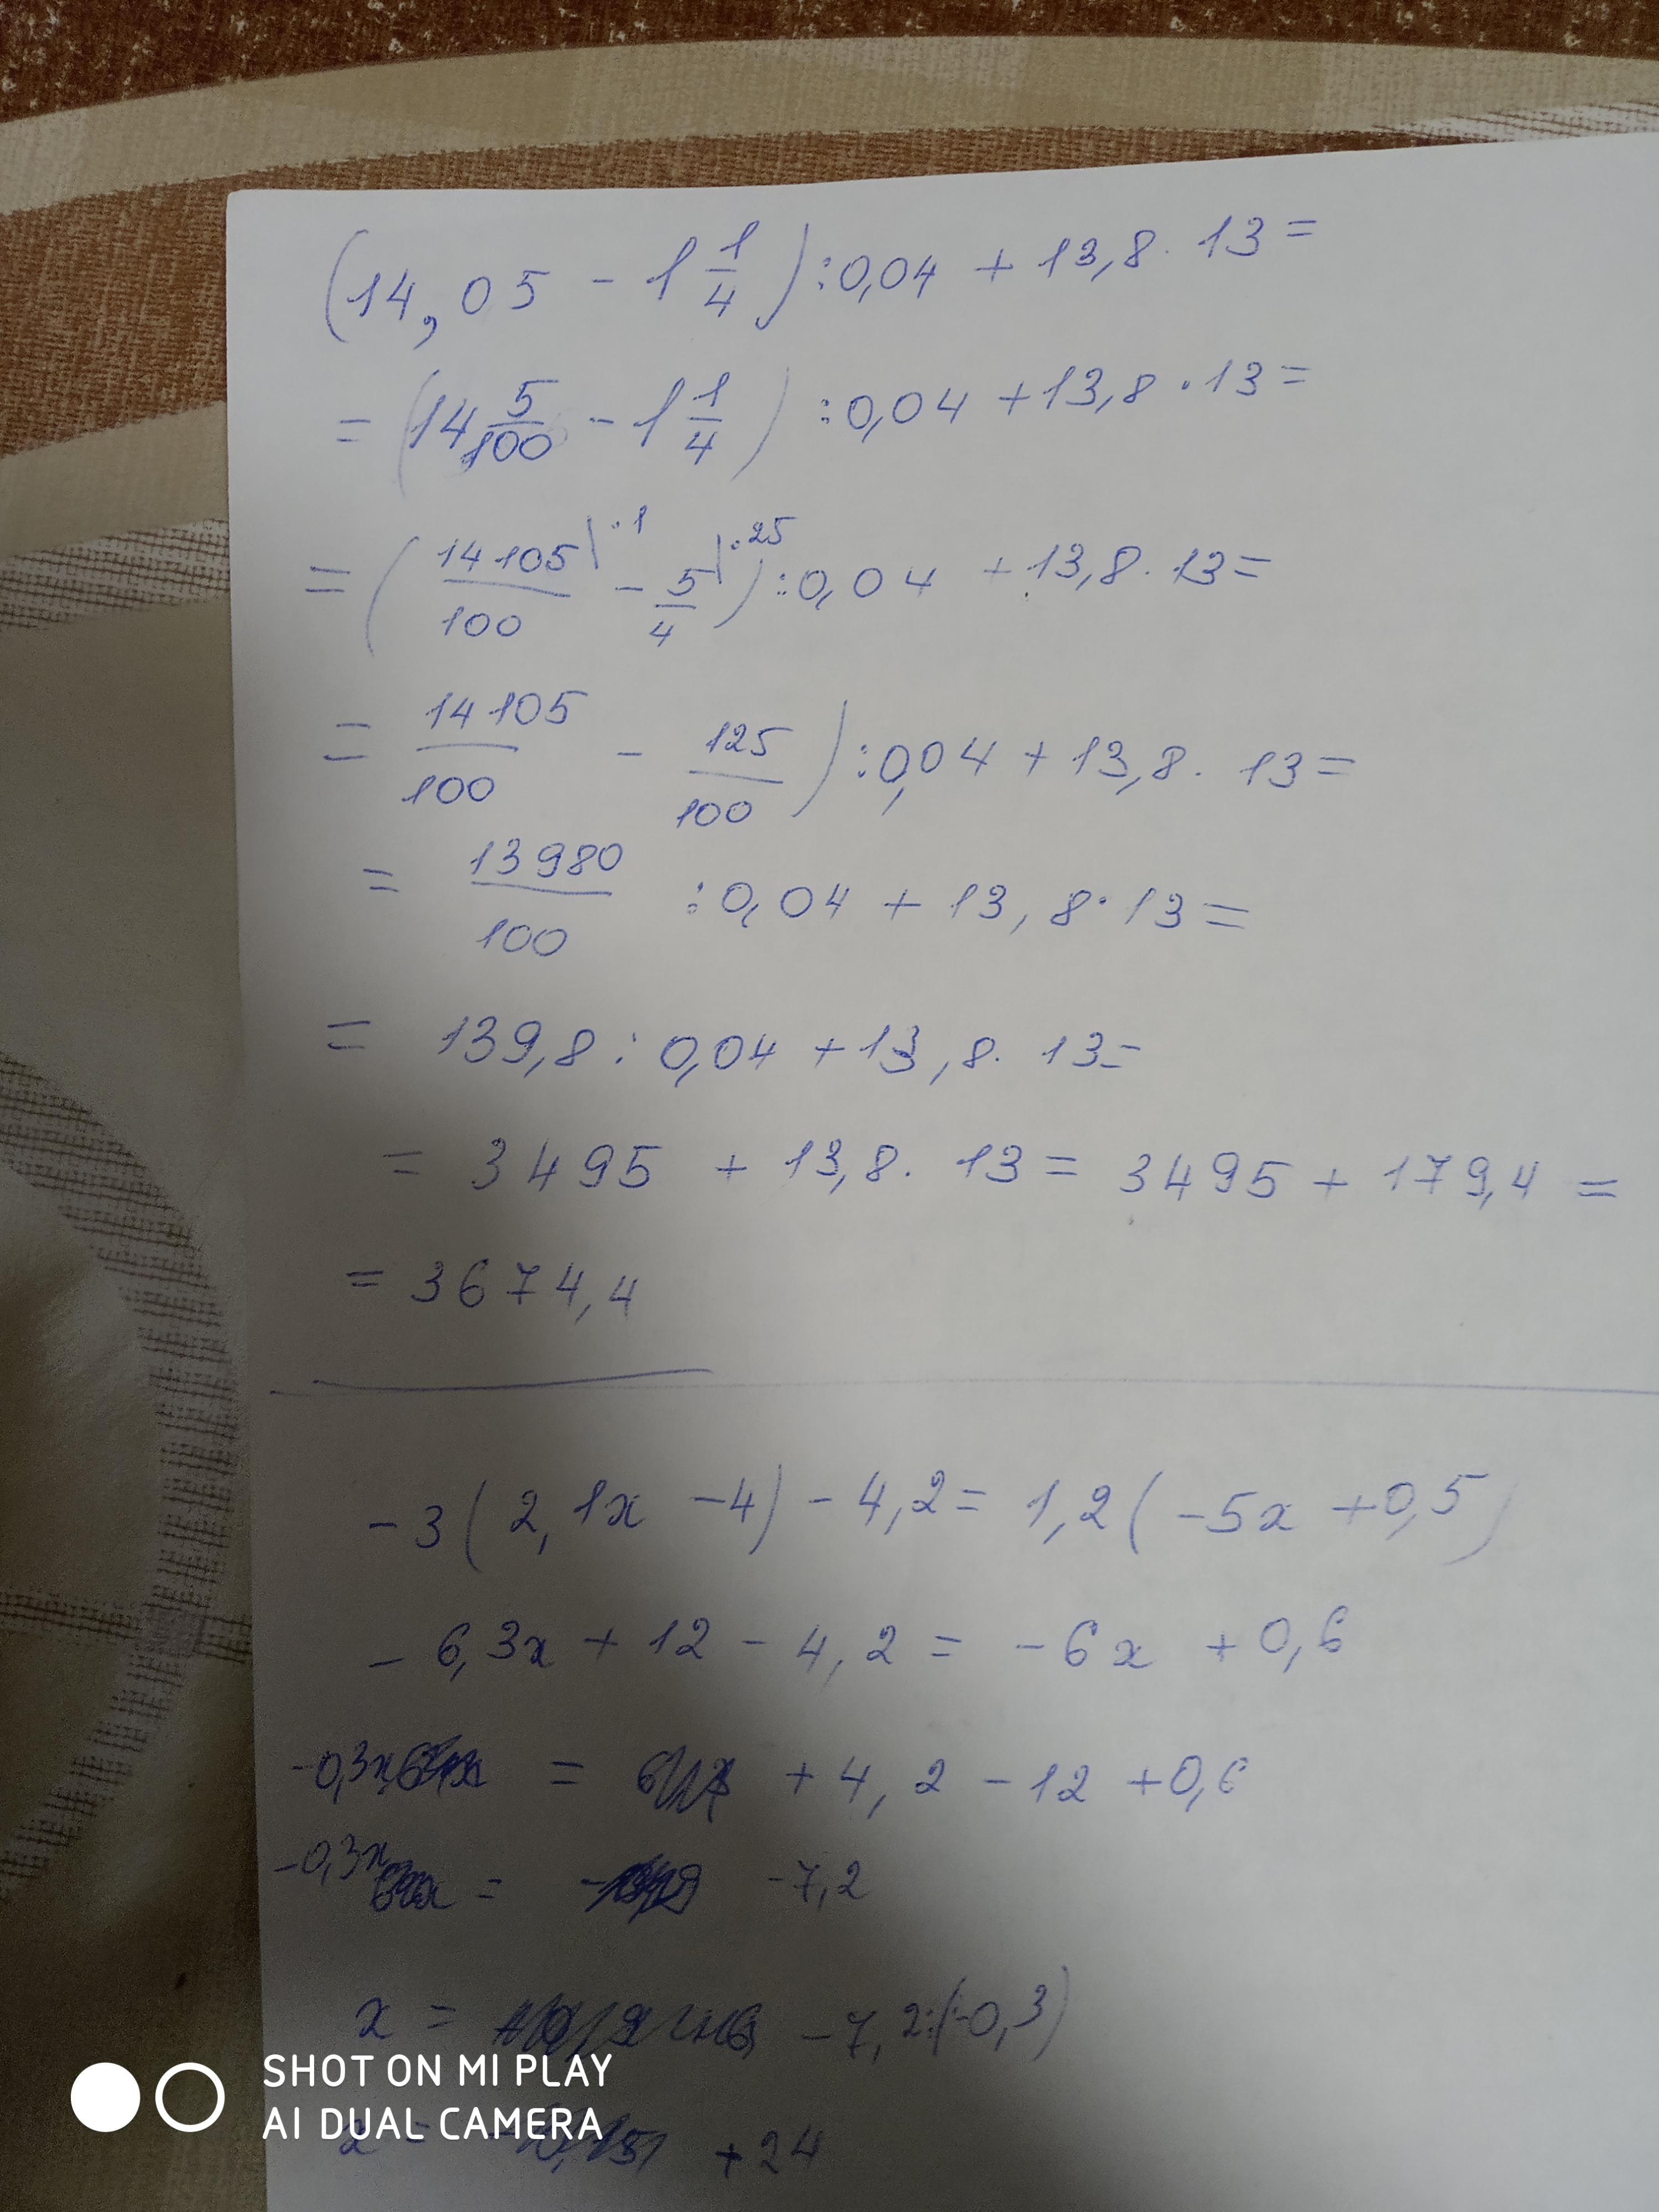 (14,05 - 1 1/4) : 0,04 + 13,8 · 13 =
= (14 5/100 - 1 1/4) : 0,04 + 13,8 · 13 =
= (14105/100 |·1 - 5/4 |·25) : 0,04 + 13,8 · 13 =
= 14105/100 - 125/100) : 0,04 + 13,8 · 13 =
= 13980/100 : 0,04 + 13,8 · 13 =
= 139,8 : 0,04 + 13,8 · 13 =
= 3495 + 13,8 · 13 = 3495 + 179,4 =
= 3674,4
-3(2,1x - 4) - 4,2 = 1,2(-5x + 0,5)
-6,3x + 12 - 4,2 = -6x + 0,6
-0,3x = + 4,2 - 12 + 0,6
-0,3x = -7,2
x = -7,2:(-0,3)
x = +24
SHOT ON MI PLAY
AI DUAL CAMERA